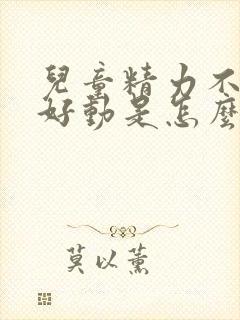 兒童精力不
好動是怎麼
莫以薰